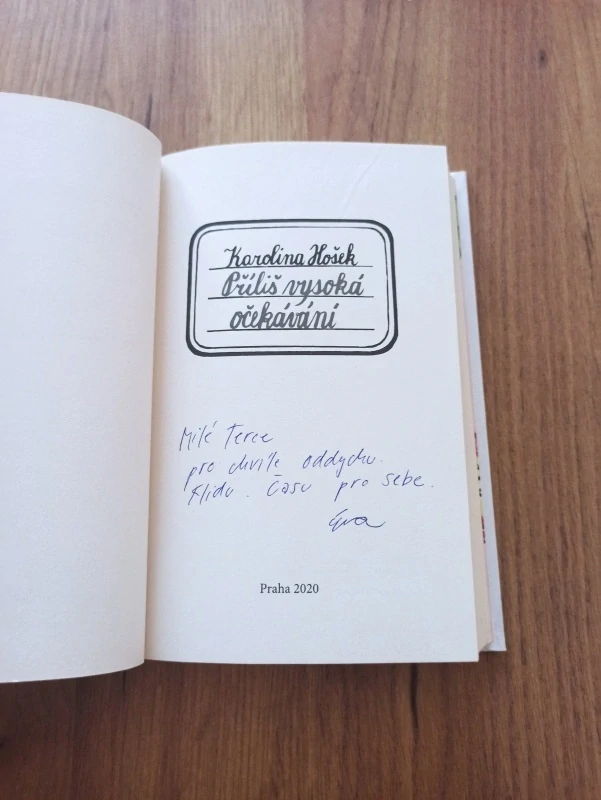 Karolina Hošek
Příliš vysoká
očekávání
Milé Terce
pro chvíle oddychu.
Klidu. Času pro sebe.
Eva
Praha 2020